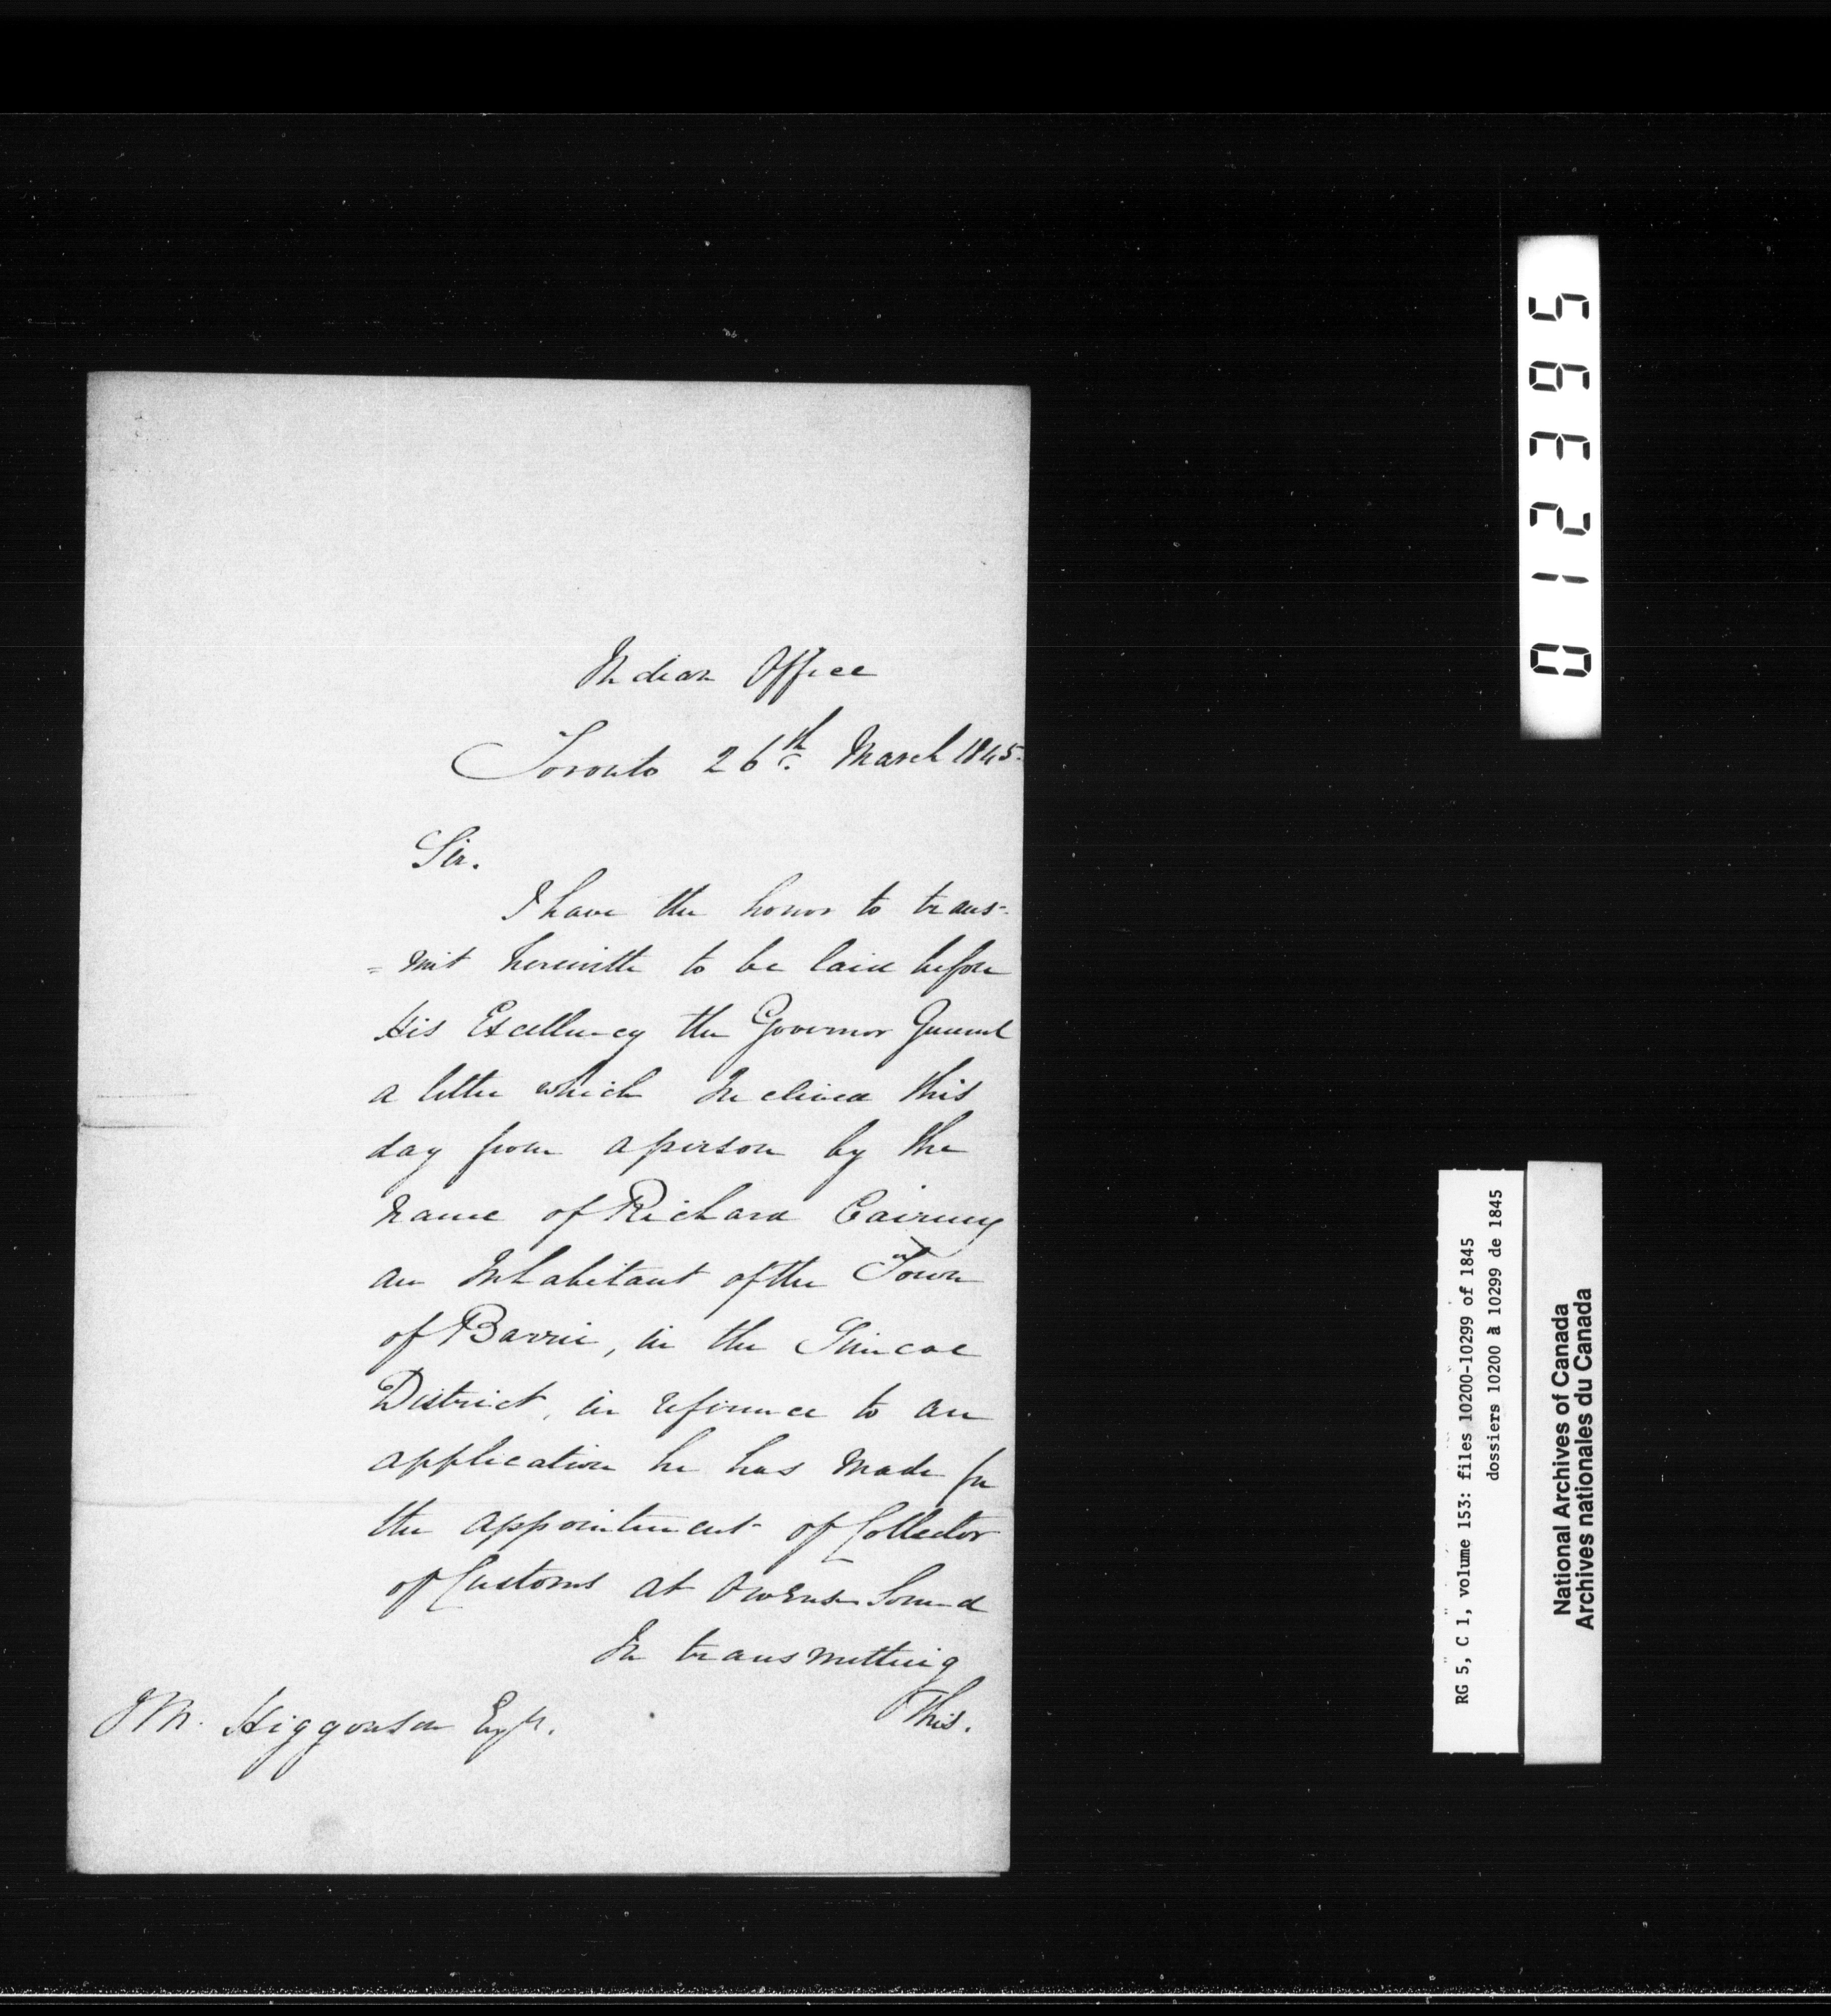 Indian Office
Toronto 26th March 1845.
Sir.
I have the honor to trans-
= mit herewith to be laid before
His Excellency the Governor General
a letter which I received this
day from a person by the
name of Richard Cairney
an Inhabitant of the Town
of Barrie, in the Simcoe
District, in reference to an
application he has made for
the appointment of Collector
of Customs at Owens Sound
In transmitting
This.
J M. Higginson Esqr.
012395
RG 5, C 1, volume 153: files 10200-10299 of 1845
dossiers 10200 à 10299 de 1845
National Archives of Canada
Archives nationales du Canada